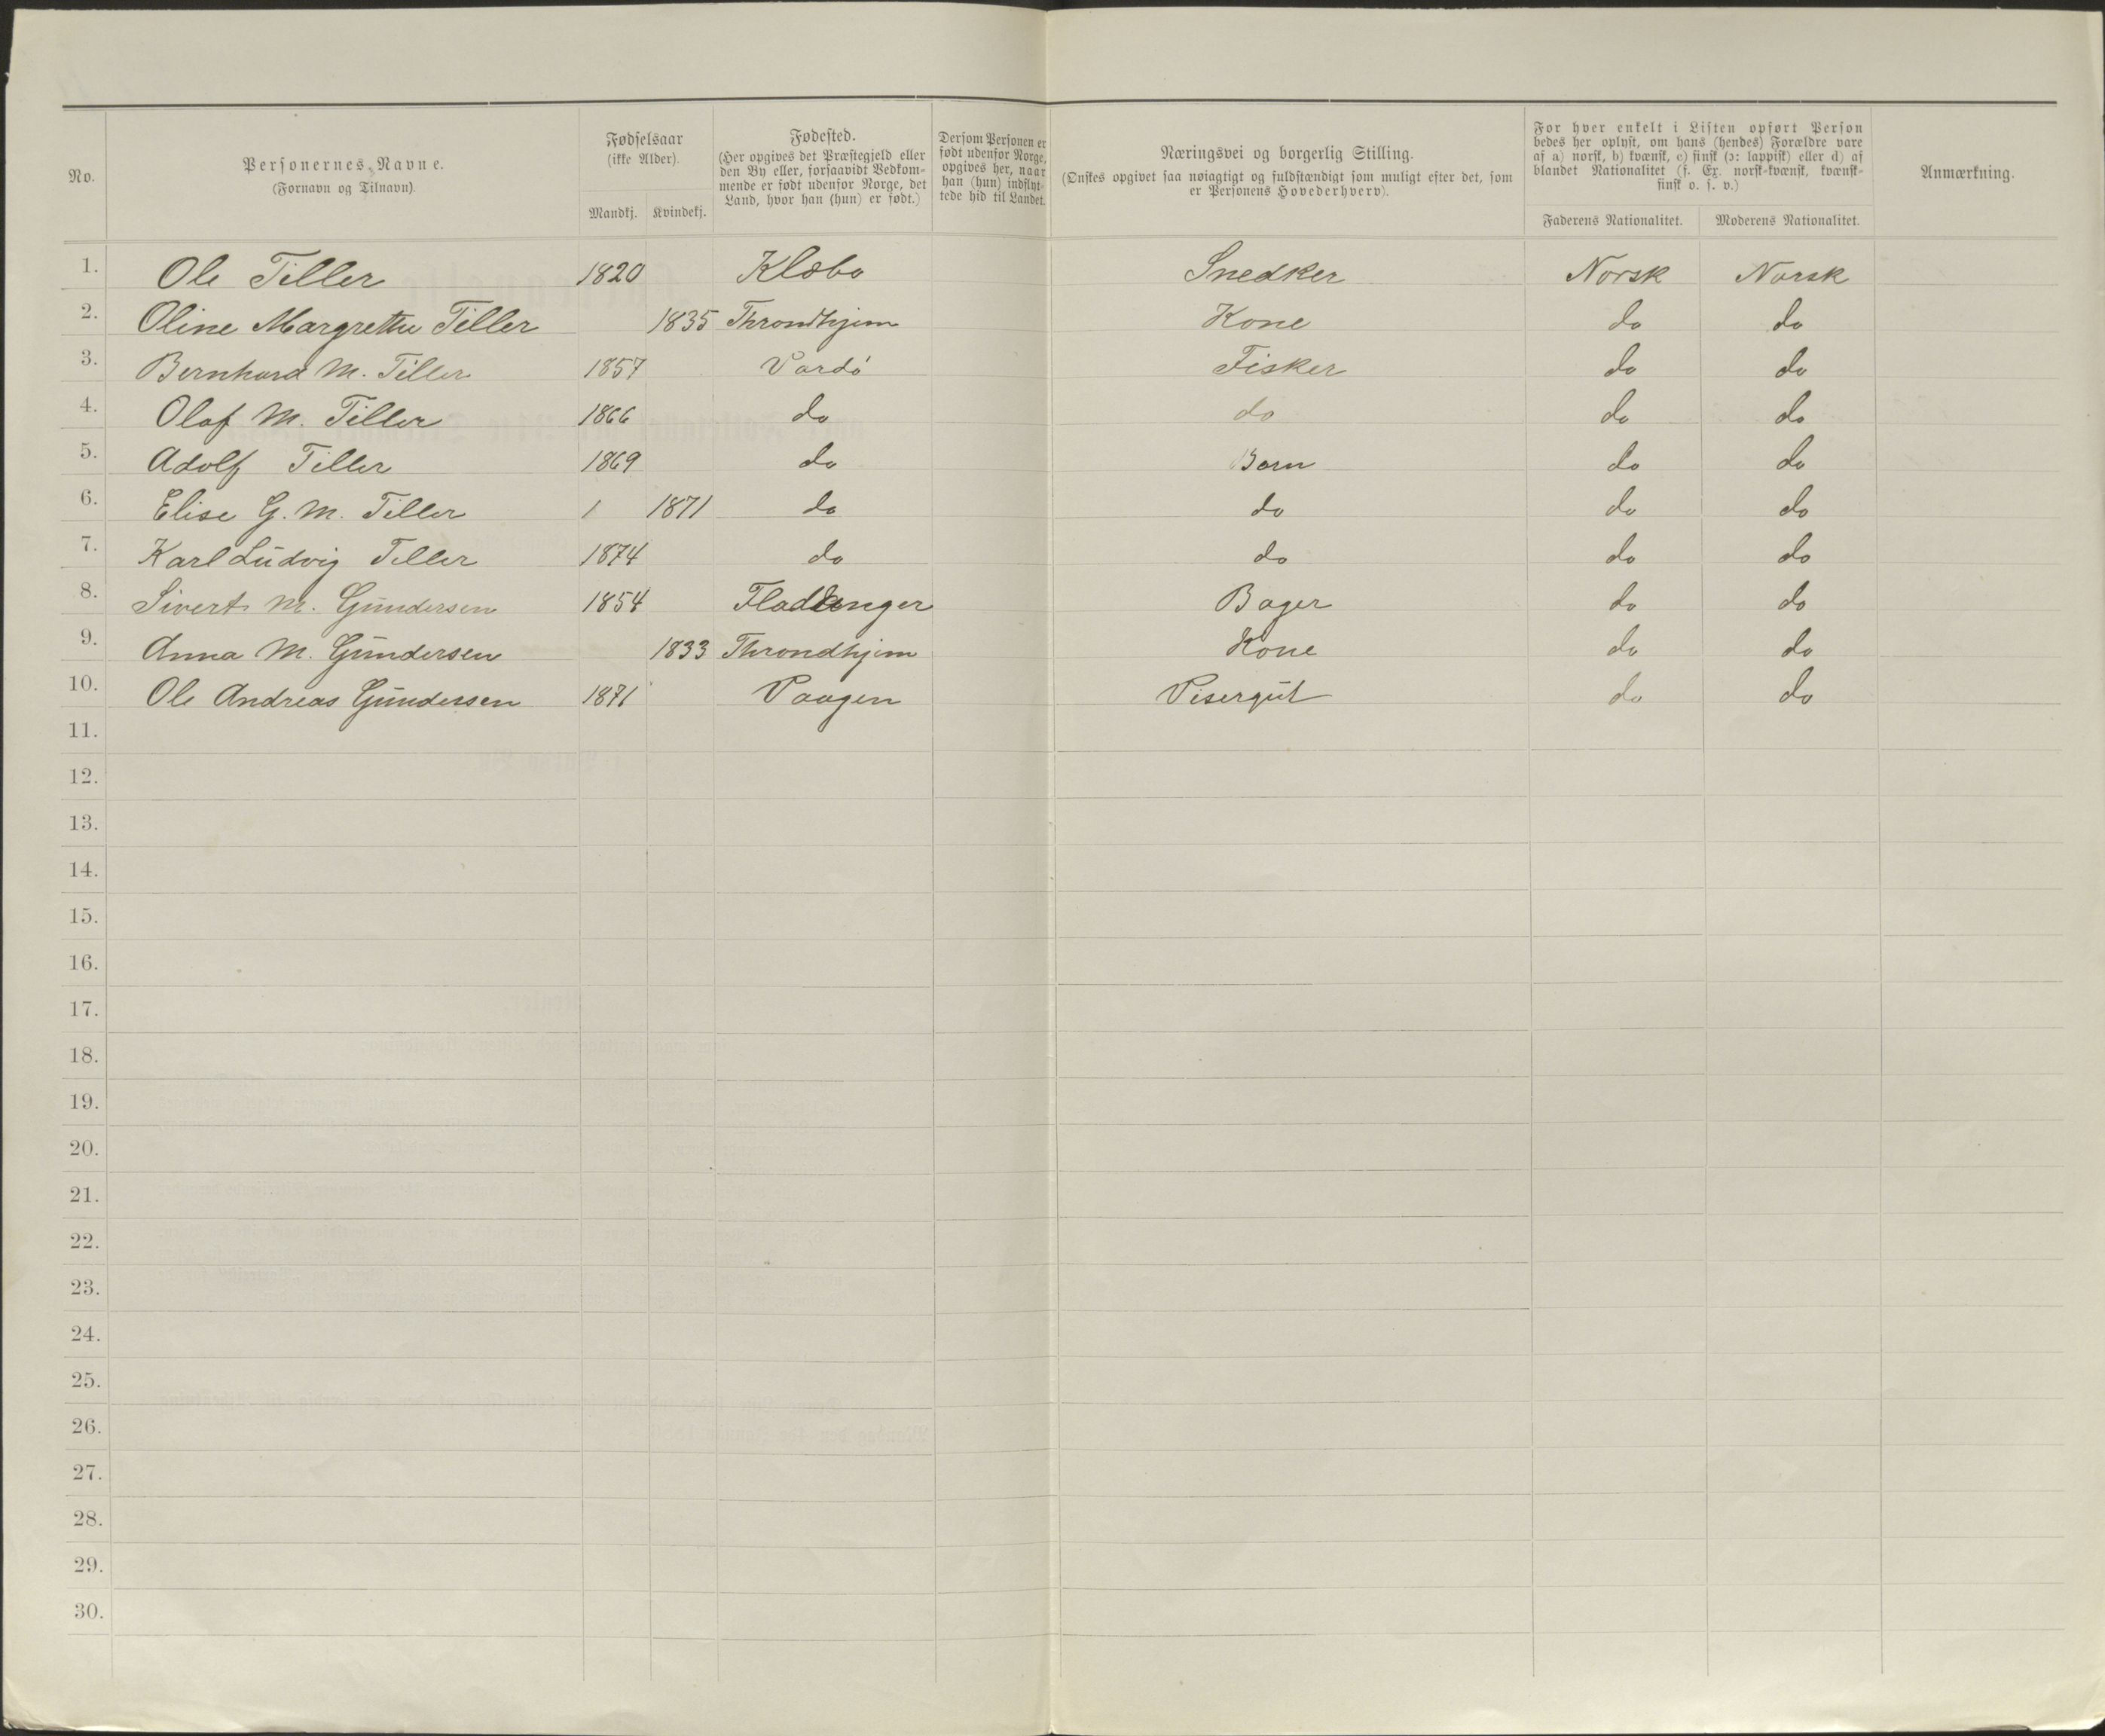 No.
Personernes Navne.
(Fornavn og Tilnavn).
Fødselsaar
(ikke Alder).
Mandkj. Kvindekj.
Fødested.
(Her opgives det Præstegjeld eller
den By eller, forsaavidt Vedkom-
mende er født udenfor Norge, det
Land, hvor han (hun) er født.)
Dersom Personen er
født udenfor Norge,
opgives her, naar
han (hun) indflyt-
tede hid til Landet.
Næringsvei og borgerlig Stilling.
(Ønskes opgivet saa nøiagtigt og fuldstændigt som muligt efter det, som
er Personens Hovederhverv).
For hver enkelt i Listen opført Person
bedes her oplyst, om hans (hendes) Forældre vare
af a) norsk, b) kvænsk, c) finsk (ɔ: lappisk) eller d) af
blandet Nationalitet (f. Ex. norsk-kvænsk, kvænsk-
finsk o. s. v.)
Faderens Nationalitet. Moderens Nationalitet.
Anmærkning.
1. Ole Tiller 1820 Klæbo Snedker Norsk Norsk
2. Oline Margrethe Tiller 1835 Throndhjem Kone do do
3. Bernhard M. Tiller 1857 Vardö Fisker do do
4. Olaf M. Tiller 1866 do do do do
5. Adolf Tiller 1869 do Barn do do
6. Elise G. M. Tiller 1 1871 do do do do
7. Karl Ludvig Tiller 1874 do do do do
8. Sivert M. Gundersen 1854 Bager do do
9. Anna M. Gundersen 1833 Throndhjem Kone do do
10. Ole Andreas Gundersen 1871 Vaagen Visergut do do
11.
12.
13.
14.
15.
16.
17.
18.
19.
20.
21.
22.
23.
24.
25.
26.
27.
28.
29.
30.